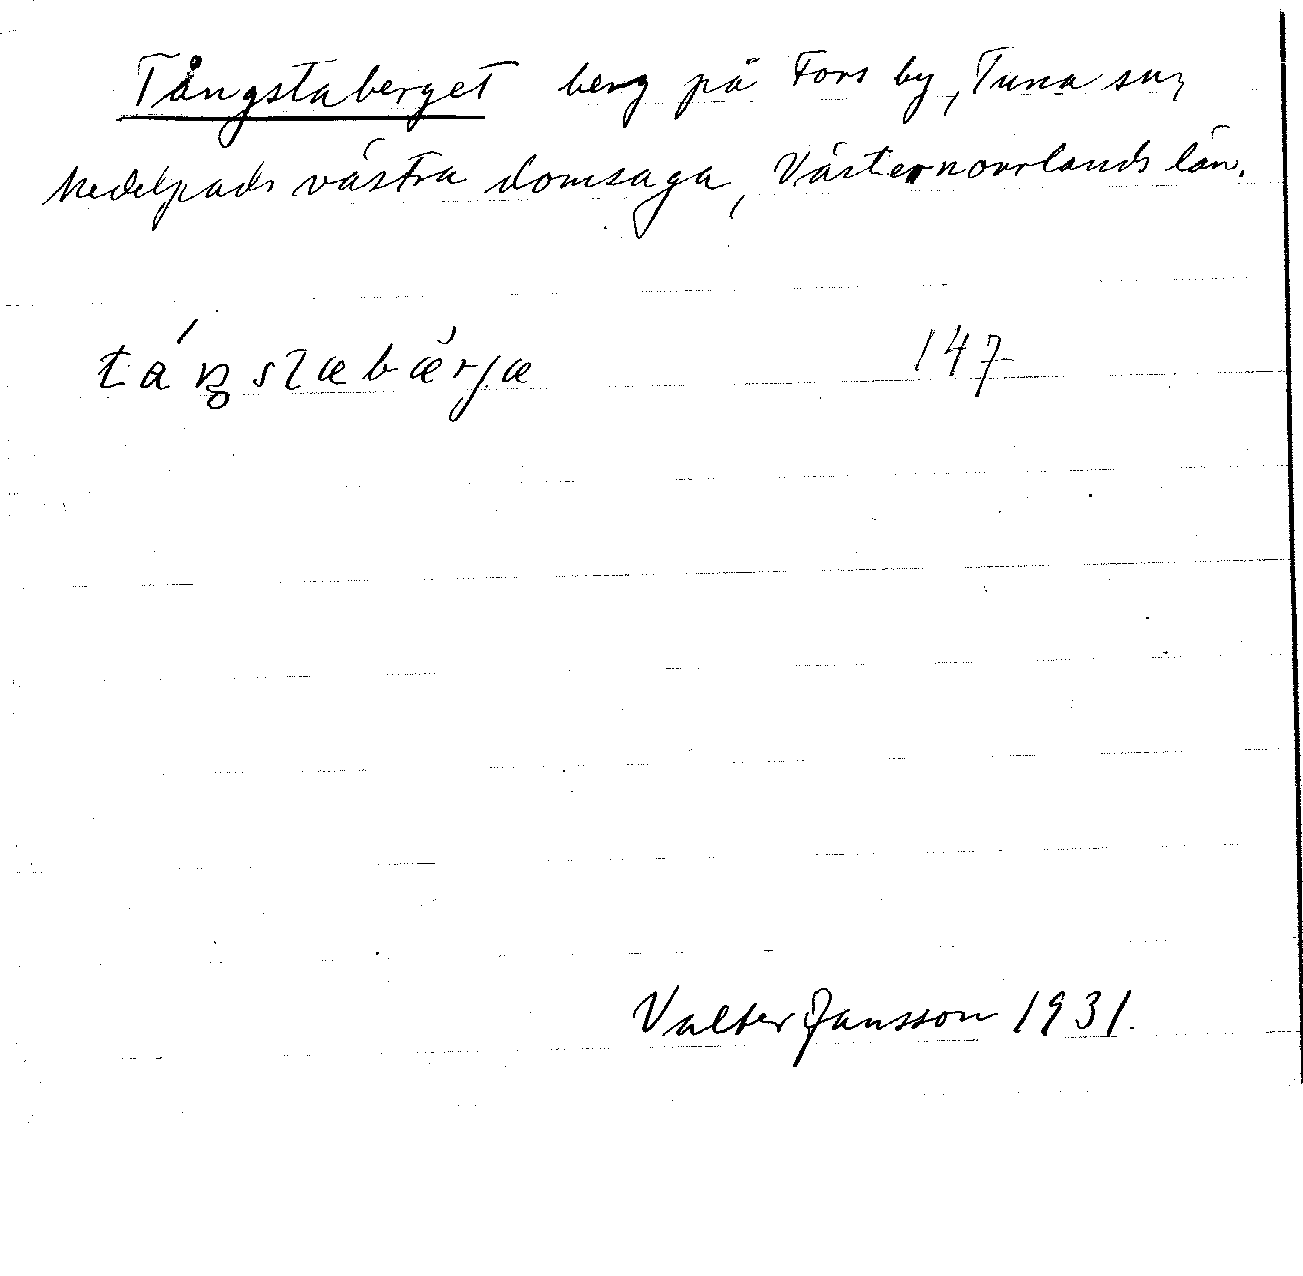 Tångstaberget berg på Fors by, Tuna sn,
Medelpads västra domsaga, Västernorrlands län.
147
Valter Jansson 1931.